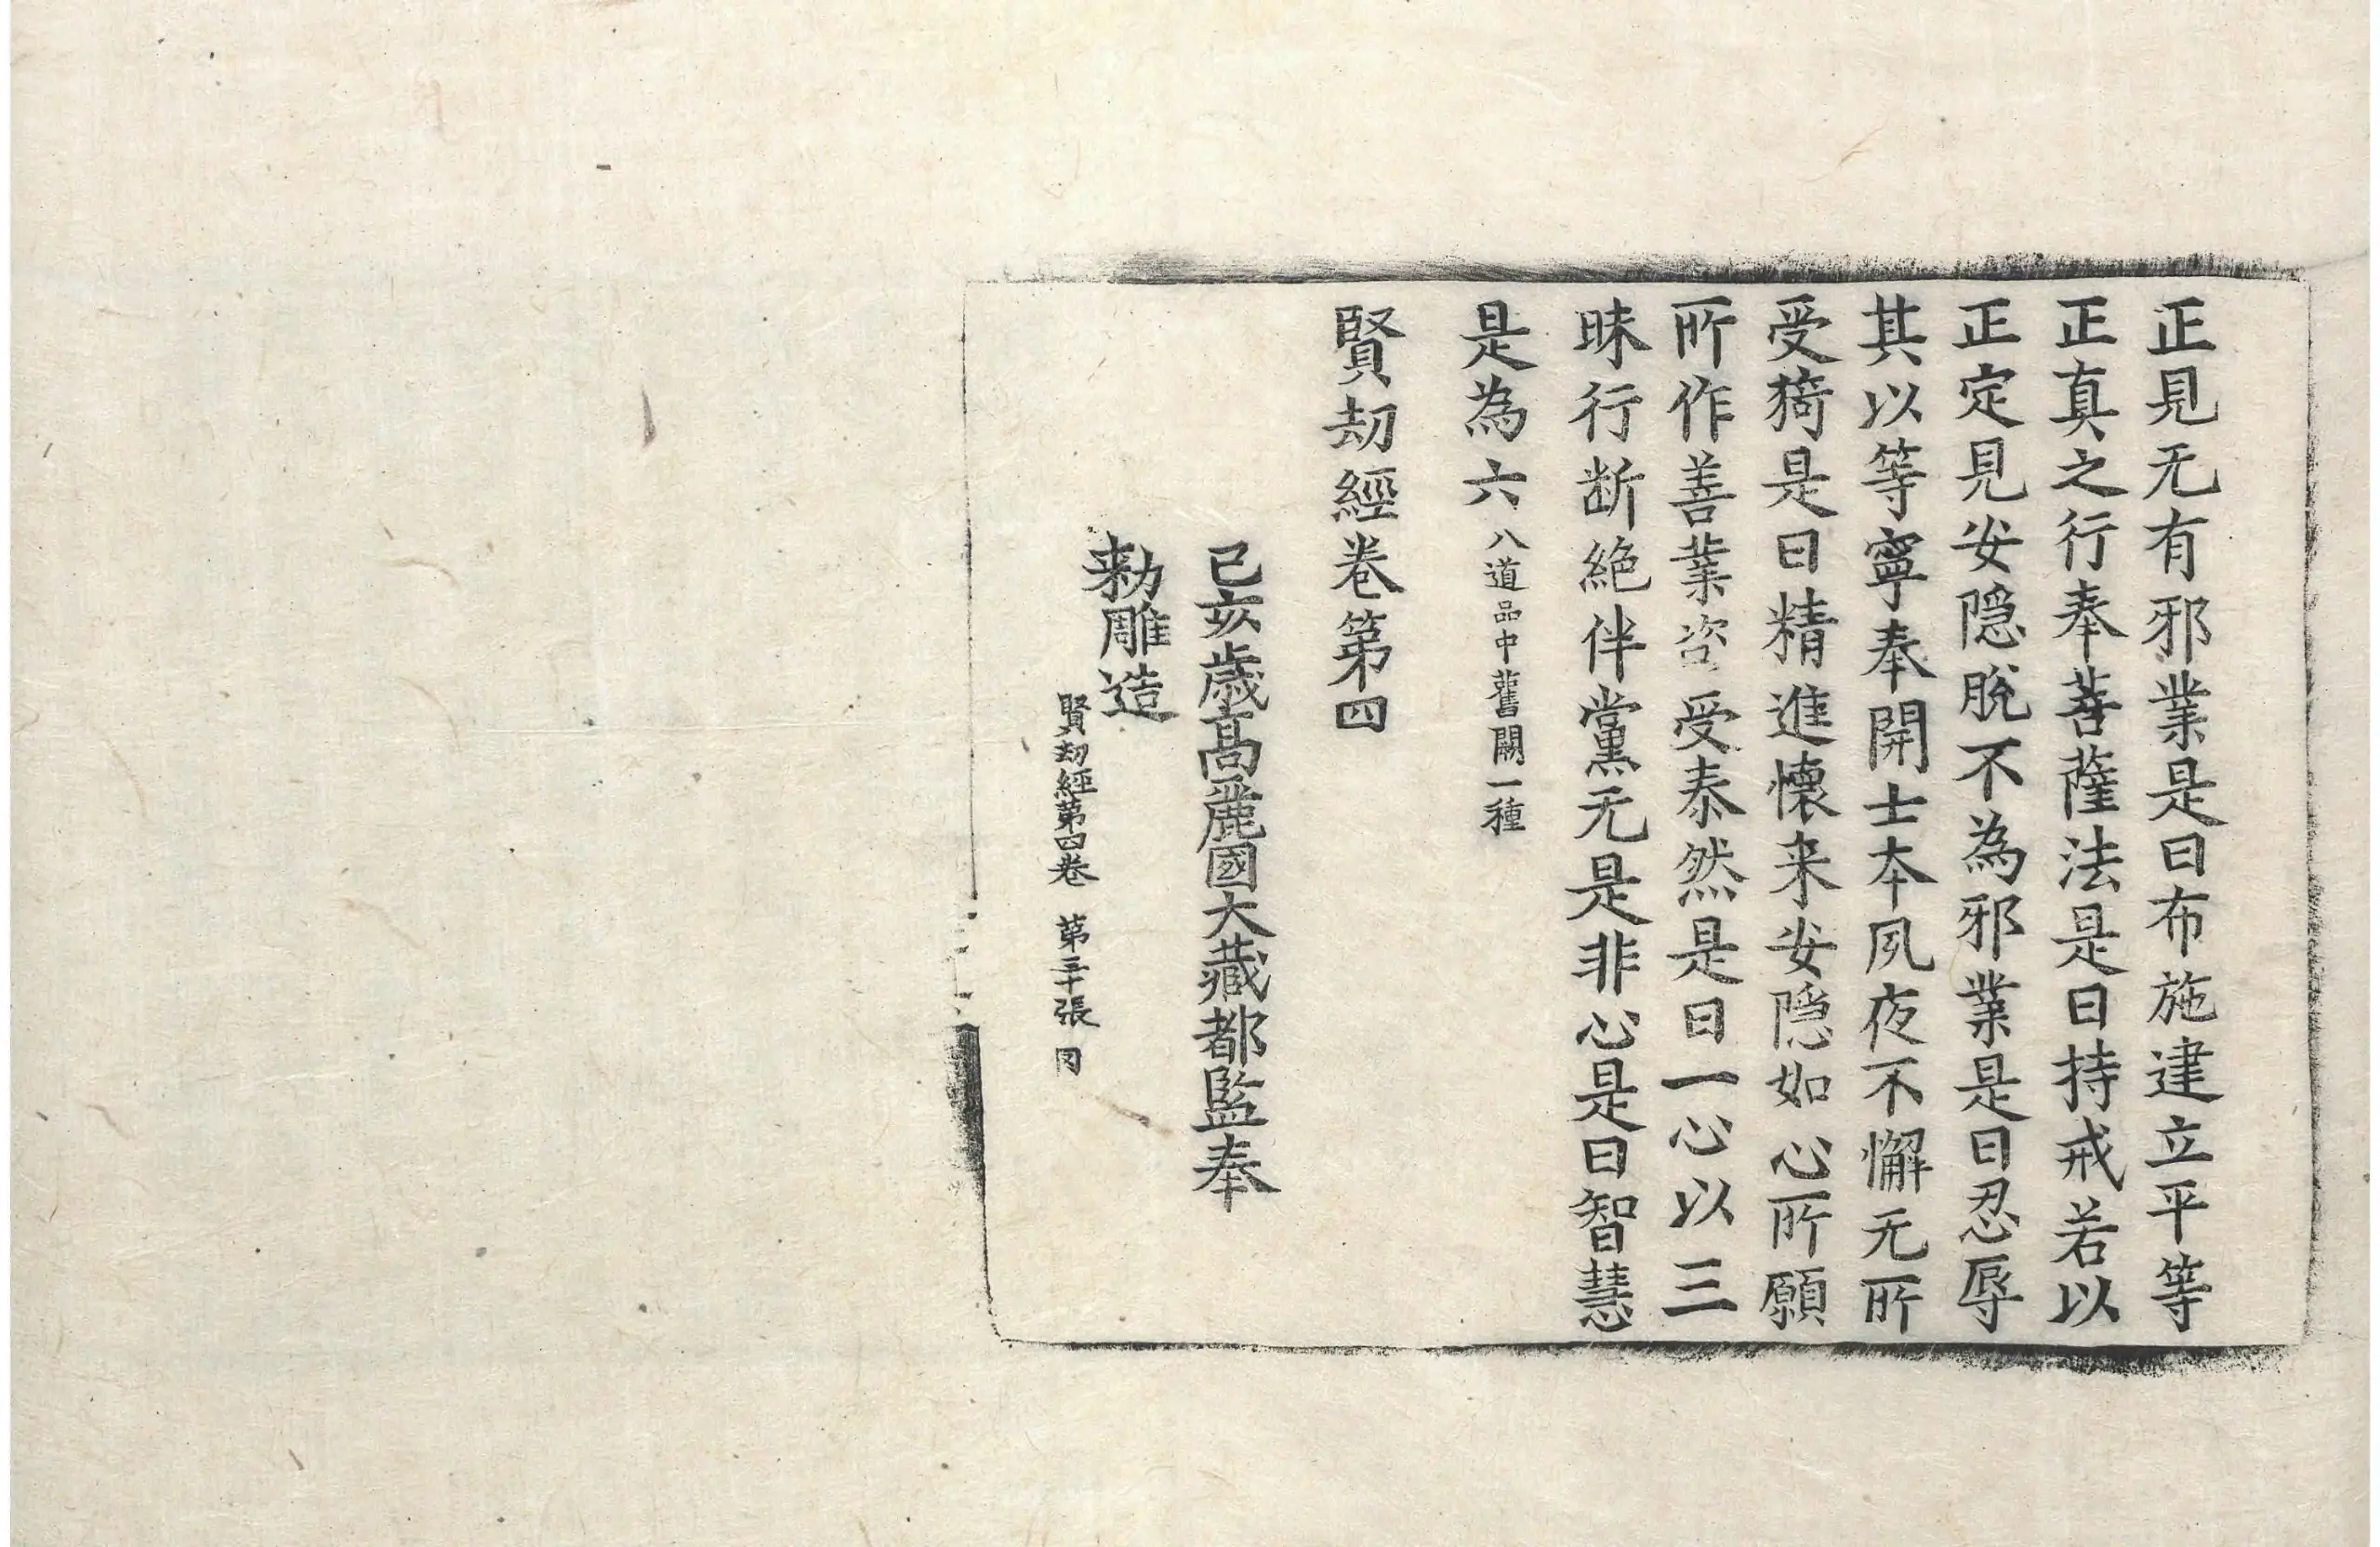 正見无有邪業是曰布施建立平等
正真之行奉菩薩法是曰持戒若以
正定見安隠脫不為邪業是曰忍辱
其以等寧奉開士本夙夜不懈无所
受猗是曰精進懷来安隠如心所願
所作善業咨受泰然是曰一心以三
昧行断絶伴黨无是非心是曰智慧
是為六 八道品中舊闕一種
賢劫經卷第四
己亥歳髙麗國大藏都監奉
勑雕造
賢劫經第四卷 第三十張 㓁